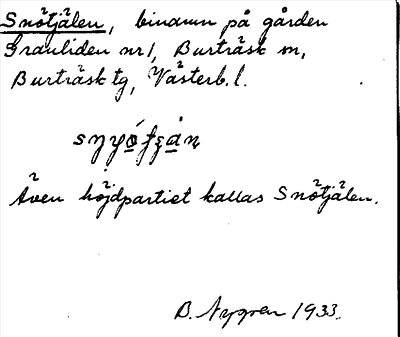 Snötjälen, binamn på gården
Granliden nr 1, Burträsk sn,
Burträsk tg, Västerb. l.
Även höjdpartiet kallas Snötjälen.
B. Nygren 1933.